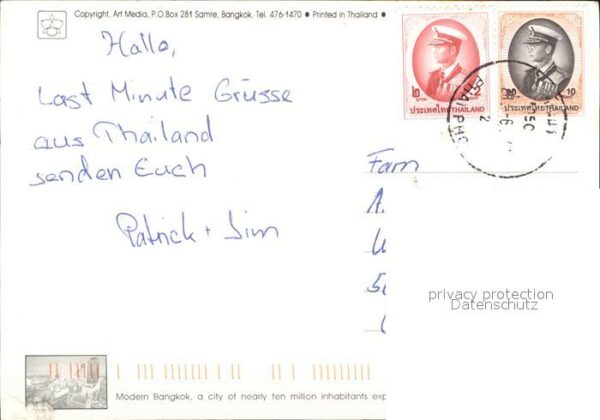 Copyright, Art Media, P.O.Box 281 Samre, Bangkok, Tel. 476-1470 ● Printed in Thailand ●
Hallo,
Last Minute Grüsse
aus Thailand
senden Euch
Patrick + Jim
๒ 2
ประเทศไทย THAILAND
๑๐ 10
ประเทศไทย THAILAND
Fam
privacy protection
Datenschutz
Modern Bangkok, a city of nearly ten million inhabitants exp